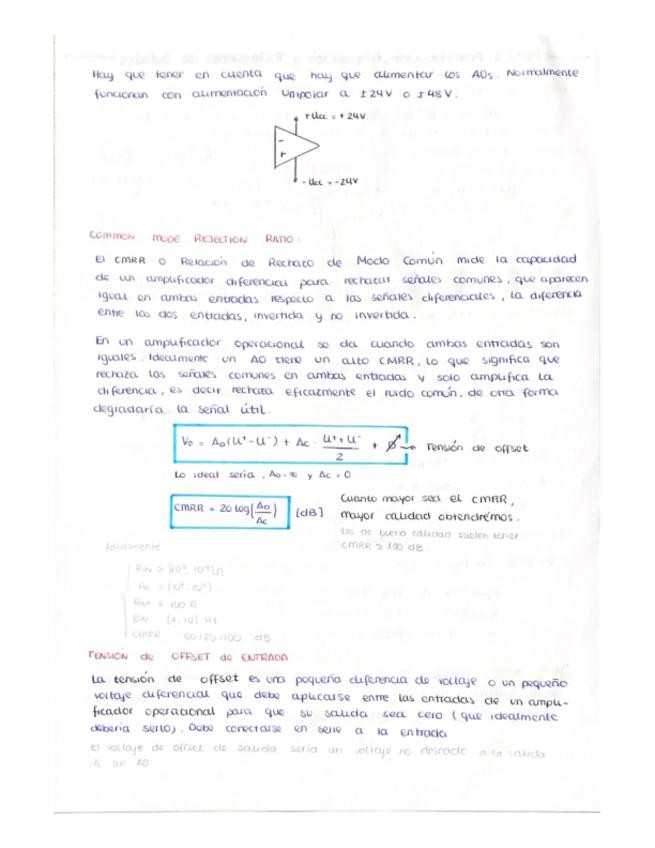 Hay que tener en cuenta que hay que alimentar los AOs. Normalmente
funcionan con alimentación unipolar a ±24V o ±48V.
+Ucc = +24V
-
+
-Ucc = -24V
COMMON MODE REJECTION RATIO:
El CMRR o Relación de Rechazo de Modo Común mide la capacidad
de un amplificador diferencial para rechazar señales comunes, que aparecen
igual en ambas entradas respecto a las señales diferenciales, la diferencia
entre las dos entradas, invertida y no invertida.
En un amplificador operacional se da cuando ambas entradas son
iguales. Idealmente un AO tiene un alto CMRR, lo que significa que
rechaza las señales comunes en ambas entradas y solo amplifica la
diferencia, es decir rechaza eficazmente el ruido común, de otra forma
degradaría la señal útil.
Vo = Ao(U⁺-U⁻) + Ac · (U⁺+U⁻)/2 + → Tensión de offset
Lo ideal sería, Ao=∞ y Ac=0
CMRR = 20 log(Ao/Ac) [dB]
Cuanto mayor sea el CMRR,
mayor calidad obtendremos.
Los de buena calidad suelen tener
CMRR ≥ 100 dB.
Idealmente
Rout < 100 Ω
CMRR 60/80/100 dB
TENSIÓN de OFFSET de ENTRADA
La tensión de offset es una pequeña diferencia de voltaje o un pequeño
voltaje diferencial que debe aplicarse entre las entradas de un ampli-
ficador operacional para que su salida sea cero (que idealmente
debería serlo). Debe conectarse en serie a la entrada
El voltaje de offset de salida sería un voltaje no deseado a la salida
de un AO